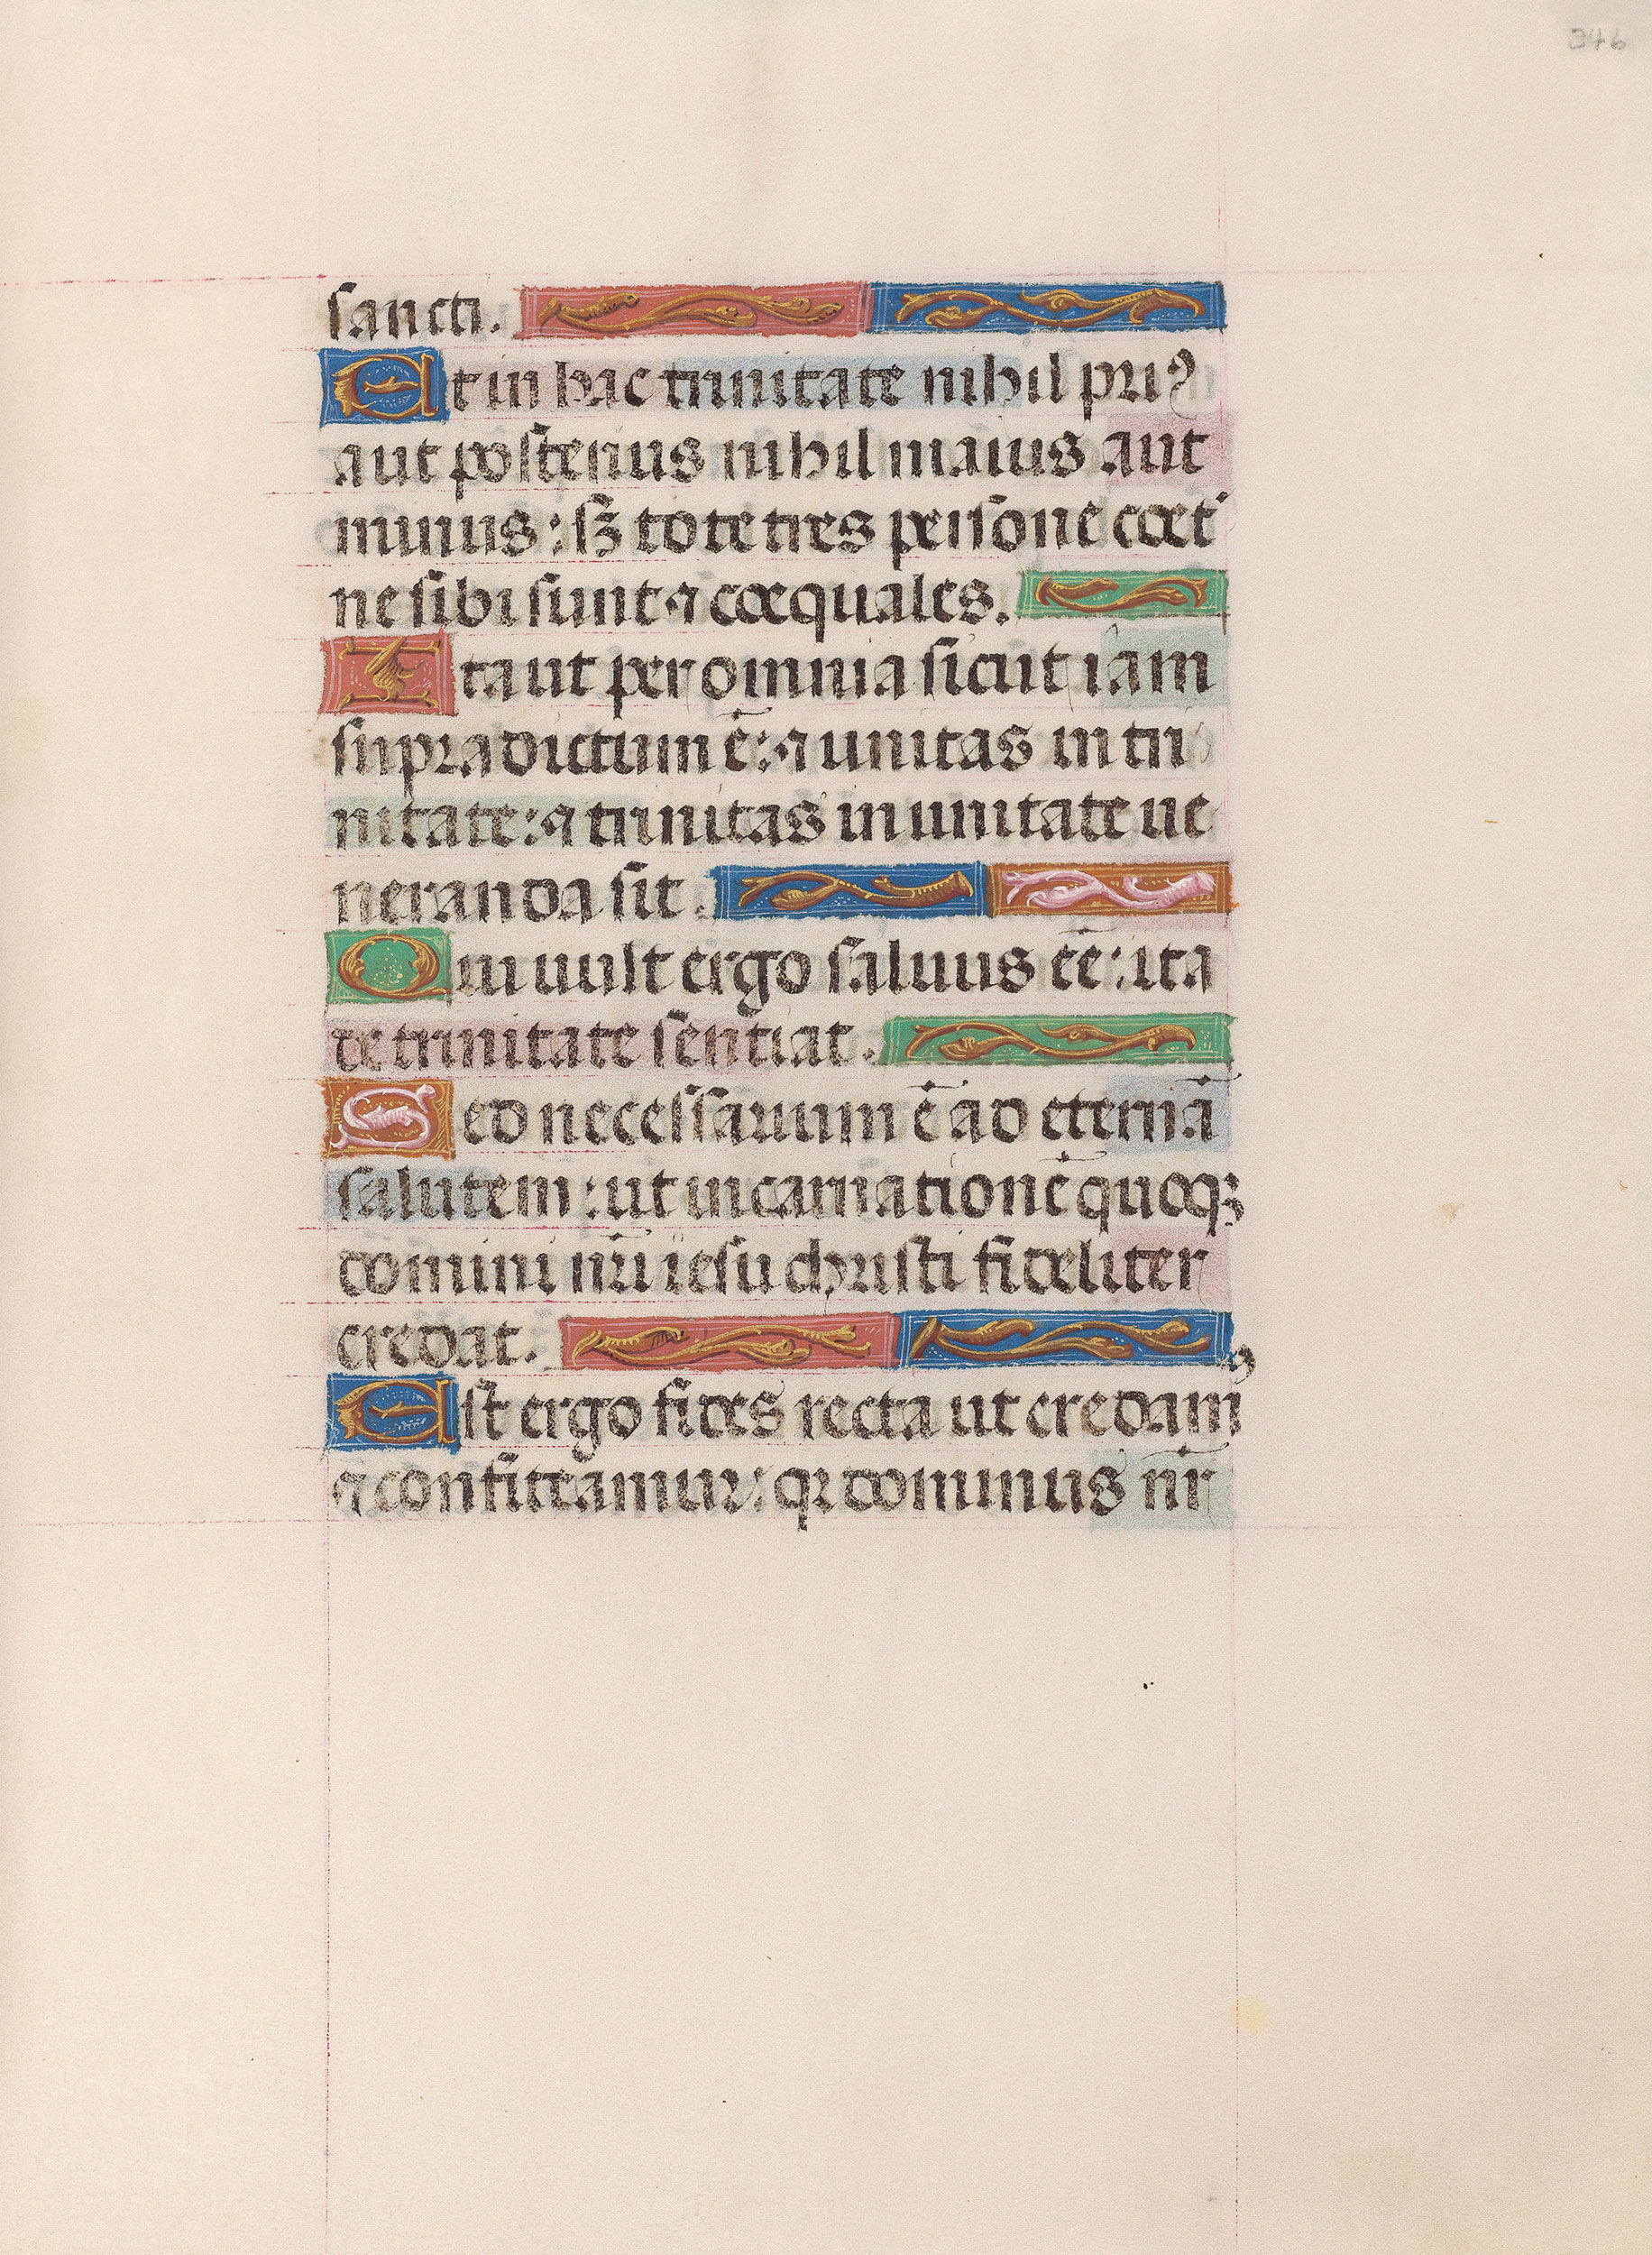 346
sancti.
Et in hac trinitate nihil pri⁹
aut posterius nihil maius aut
minus: sꝫ tote tres persone coet͛
ne sibi sunt ⁊ coequales.
Ita ut per omnia sicut iam
supradictum ē: ⁊ unitas in tri
nitate: ⁊ trinitas in unitate ue
neranda sit.
Qui uult ergo saluus ēē: ita
de trinitate sentiat.
Sed necessarium ē ad eternā
salutem: ut incarnationē quoqꝫ
domini nr̄i iesu christi fideliter
credat.
Est ergo fides recta ut credam⁹
⁊ confiteamur: qꝛ dominus nr̄